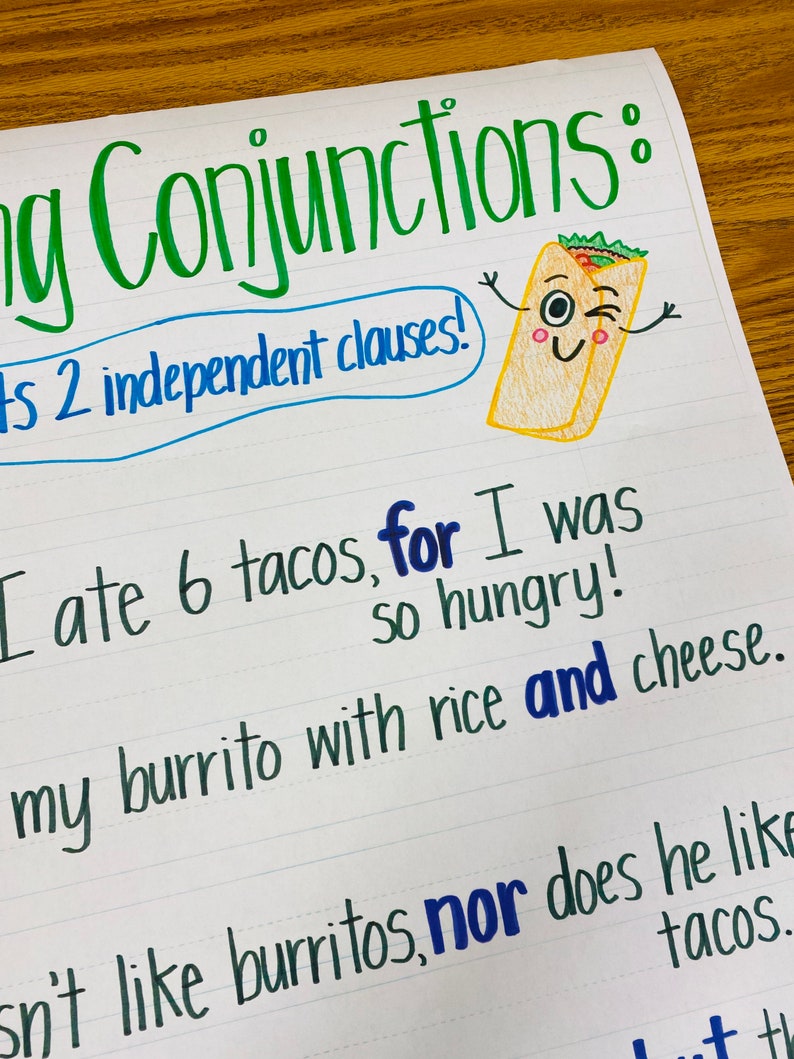 ng Conjunctions:
ts 2 independent clauses!
I ate 6 tacos, for I was
so hungry!
my burrito with rice and cheese.
sn't like burritos, nor does he like
tacos.
but th